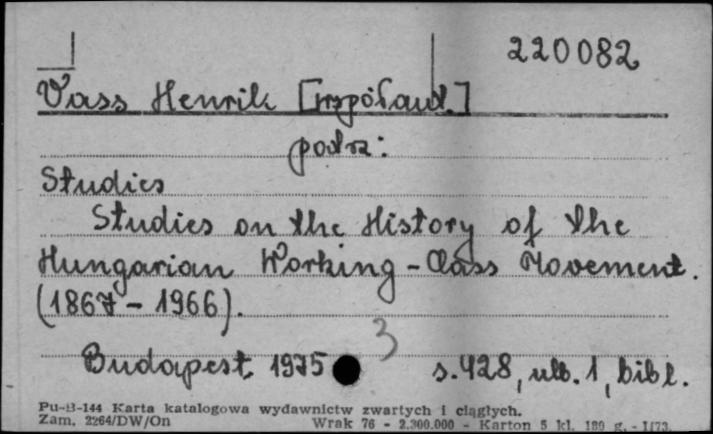 220082
Vass Henrik [współaut.]
podrz:
Studies
Studies on the History of the
Hungarian Working-Class Movement.
(1867-1966).
3
Budapest 1975 s. 428, ulb. 1, bibl.
Pu-B-144 Karta katalogowa wydawnictw zwartych i ciągłych.
Zam. 2264/DW/On Wrak 76 - 2.300.000 - Karton 5 kl. 180 g. - 1173.